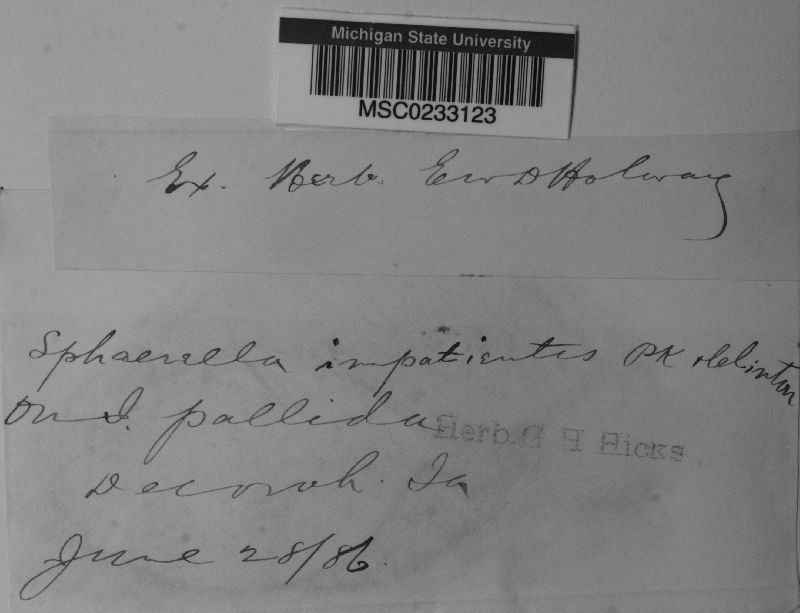 Michigan State University
MSC0233123
Ex. Herb. EWDHolway
Sphaerella impatientis PK &Clinton
On I. pallida
Herb. G H Hicks.
Decorah. Ia
June 28/86.